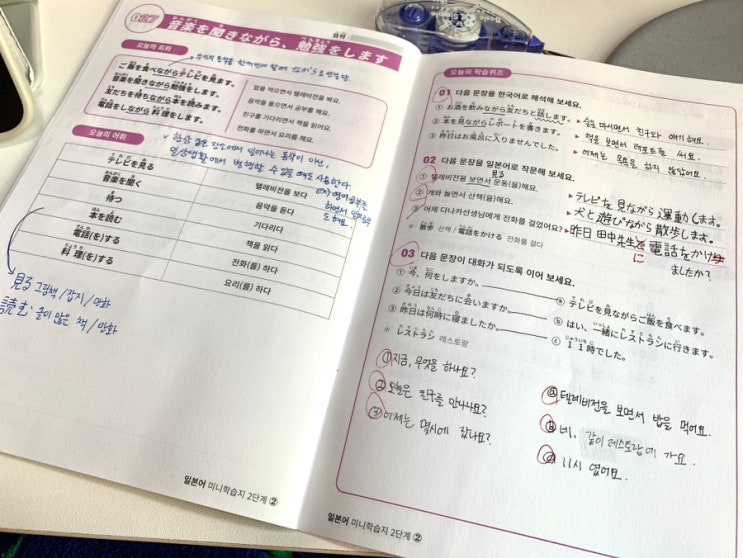 音楽を聞きながら、勉強をします
오늘의 회화
ご飯を食べながらテレビを見ます。
밥을 먹으면서 텔레비전을 봐요.
音楽を聞きながら勉強をします。
음악을 들으면서 공부를 해요.
友だちを待ちながら本を読みます。
친구를 기다리면서 책을 읽어요.
電話をしながら料理をします。
전화를 하면서 요리를 해요.
오늘의 어휘
テレビを見る
텔레비전을 보다
音楽を聞く
음악을 듣다
待つ
기다리다
本を読む
책을 읽다
電話(を)する
전화(를) 하다
料理(を)する
요리(를) 하다
見る 그림책/잡지/만화
読む: 글이 많은 책/만화
일본어 미니학습지 2단계 ②
오늘의 학습퀴즈
01 다음 문장을 한국어로 해석해 보세요.
① お酒を飲みながら友だちと話します。
술을 마시면서 친구와 얘기해요.
② 本を見ながらレポートを書きます。
책을 보면서 레포트를 써요.
③ 昨日はお風呂に入りませんでした。
어제는 목욕을 하지 않았어요.
02 다음 문장을 일본어로 작문해 보세요.
① 텔레비전을 보면서 운동(을)해요.
見る
テレビを見ながら運動します。
② 개와 놀면서 산책(을)해요.
犬と遊びながら散歩します。
③ 어제 다나카선생님에게 전화를 걸었어요?
昨日 田中先生に電話をかけ
ましたか?
* 散歩 산책 / 電話をかける 전화를 걸다
03 다음 문장이 대화가 되도록 이어 보세요.
① 今、何をしますか。
ⓐ テレビを見ながらご飯を食べます。
② 今日は友だちに会いますか。
ⓑ はい、一緒にレストランに行きます。
③ 昨日は何時に寝ましたか。
ⓒ 11時でした。
* レストラン 레스토랑
① 지금, 무엇을 하나요?
② 오늘은 친구를 만나나요?
③ 어제는 몇시에 잤나요?
ⓐ 텔레비전을 보면서 밥을 먹어요.
ⓑ 네, 같이 레스토랑에 가요.
ⓒ 11시 였어요.
일본어 미니학습지 2단계 ②